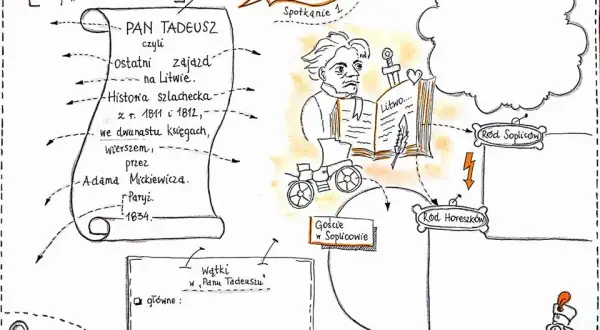 Spotkanie 1
PAN TADEUSZ
czyli
ostatni zajazd
na Litwie.
Historia szlachecka
z r. 1811 i 1812,
we dwunastu księgach,
wierszem,
przez
Adama Mickiewicza.
Paryż.
1834.
Litwo...
Ród Sopliców
Ród Horeszków
Goście
w Soplicowie
Wątki
w „Panu Tadeuszu"
główne: